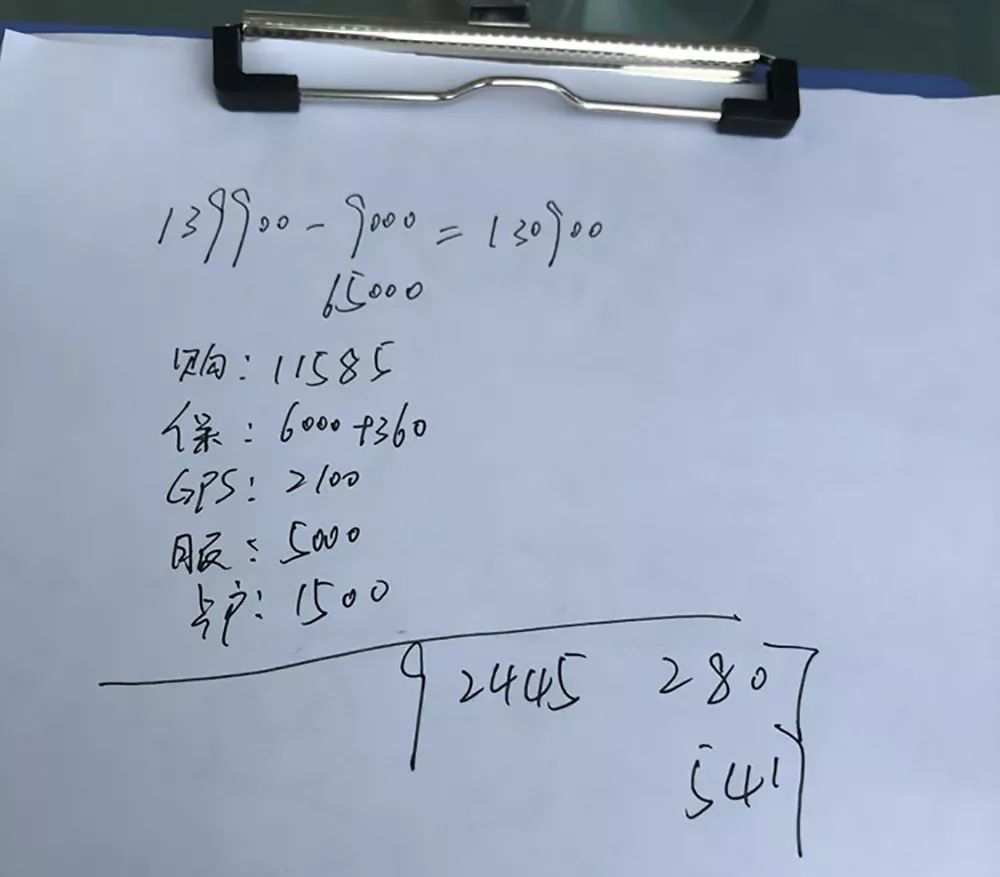 139900 - 9000 = 130900
65000
购: 11585
保: 6000+360
GPS: 2100
服: 5000
上户: 1500
92445 2807